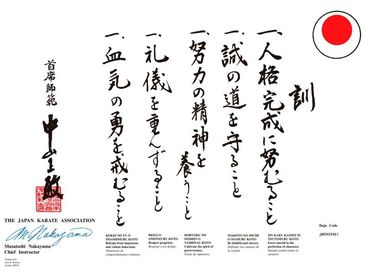 訓
一、人格完成に努むること
一、誠の道を守ること
一、努力の精神を養うこと
一、礼儀を重んずること
一、血気の勇を戒むること
首席師範
中山正敏
THE JAPAN KARATE ASSOCIATION
M. Nakayama
Masatoshi Nakayama
Chief Instructor
KEKKI NO YU O
IMASHIMURU KOTO
Refrain from impetuous
and violent behaviour.
REIGI O
OMONZURU KOTO
Respect propriety.
DORYOKU NO
SEISHIN O
YASHINAU KOTO
Cultivate the spirit of
perseverance.
MAKOTO NO MICHI
O MAMORU KOTO
Be faithful and sincere.
JIN KAKU KANSEI NI
TSUTOMURU KOTO
Exert oneself in the
perfection of character.
Dojo Code